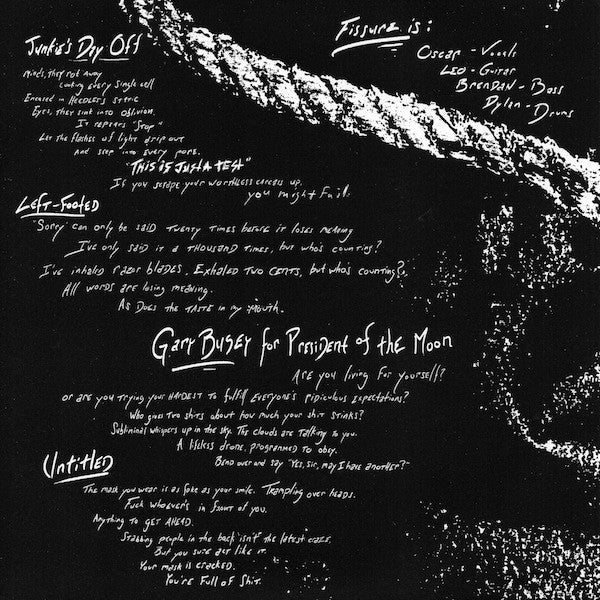 Junkie's Day Off
Minds, they rot away
every single cell
Encased in needles static
Eyes, they sink into oblivion.
It repeats "Stop"
Let the flashes of light drip out
And seep into every pore.
"This is just a test"
If you scrape your worthless carcass up,
you might fail.
Left-Footed
"Sorry" can only be said twenty times before it loses meaning
I've only said it a thousand times, but who's counting?
I've inhaled razor blades. Exhaled two cents, but who's counting?
All words are losing meaning.
As does the taste in my mouth.
Gary Busey for President of the Moon
Are you living for yourself?
or are you trying your hardest to fulfill everyone's ridiculous expectations?
Who gives two shits about how much your shit stinks?
Subliminal whispers up in the sky. The clouds are talking to you.
A lifeless drone, programmed to obey.
Bend over and say "Yes, sir, may I have another?"
Untitled
The mask you wear is as fake as your smile. Trampling over heads.
Fuck whoever's in front of you.
Anything to get ahead.
Stabbing people in the back isn't the latest craze.
But you sure act like it.
Your mask is cracked.
You're full of shit.
Fissure is:
Oscar - Vocals
Leo - Guitar
Brendan - Bass
Dylan - Drums